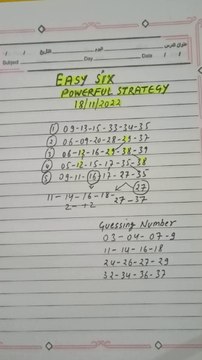 موضوع الدرس / / التاريخ اليوم / /
Subject Day Date / /
EASY SIX
POWERFUL STRATEGY
18/11/2022
① 09-13-15-33-34-35
② 06-09-20-28-29-37
③ 06-12-16-29-38-39
④ 05-12-15-17-35-38
⑤ 09-11-16-17-27-35
27
11-14-16-18-27-37
2-12
Guessing Number
03-04-07-9
11-14-16-18
24-26-27-29
32-34-36-37